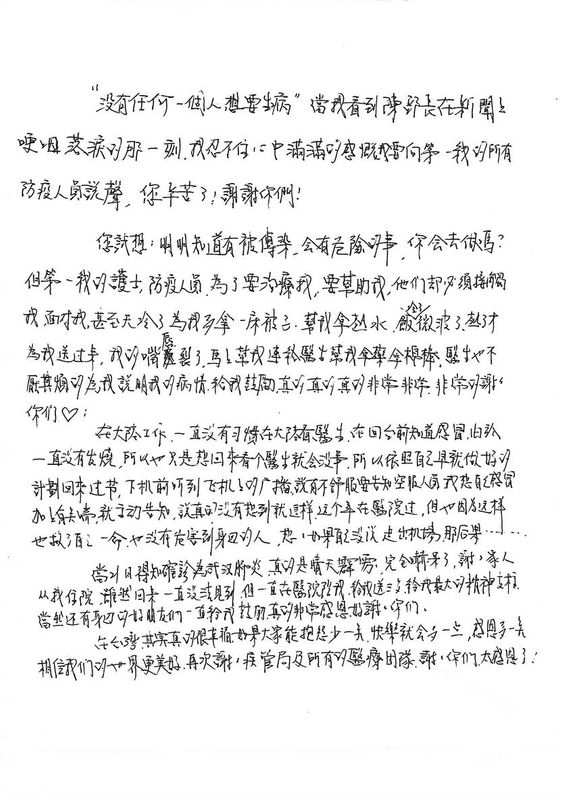 “没有任何一個人想要生病”當我看到陳部長在新聞上
哽咽落淚的那一刻,我忍不住心中滿滿的感慨我要向第一線的所有
防疫人員說聲,你辛苦了!謝謝你們!
您試想:明明知道有被傳染,会有危險的事,你会去做嗎?
但第一線的護士,防疫人員,為了要治療我,要幫助我,他們却必須接觸
我,面对我,甚至天冷了為我多拿一床被子,幫我拿熱水,飯冷微波了熱才
為我送过来,我的嘴唇裂了,馬上幫我連絡醫生幫我拿護唇膏,醫生也不
厭其煩的為我說明我的病情,给我鼓勵,真的真的真的非常非常非常的謝谢
你们♡!
在大陸工作,一直没有习慣在大陸看醫生,在回台前知道感冒,由於
一直没有发燒,所以也只是想回来看个醫生就会没事,所以依照自己早就做好的
計劃回来过节,下机前听到飞机上的广播,說有不舒服要告知空服人員,我想自己感冒
加上有去嘴,就主动告知,說真的没有想到就这样这个年在醫院过,但也因為这样
也救了自己一命,也没有危害到身边的人,想想如果自己没說,走出机場,那后果……
當21日得知確診為武汉肺炎,真的是晴天霹靂,完全嚇呆了,謝谢家人
從我住院,雖然回来一直没法見到,但一直在醫院陪我,给我送三餐,给我最大的精神支持,
當然还有身边的好朋友们一直给我鼓励,真的非常感恩,好謝谢你们。
在台灣,其實真的很幸福,如果大家能抱怨少一点,快樂就会多一点,感恩多一点
相信我們的世界更美好,再次謝谢疾管局及所有的醫療团隊,謝谢你们,太感恩了!